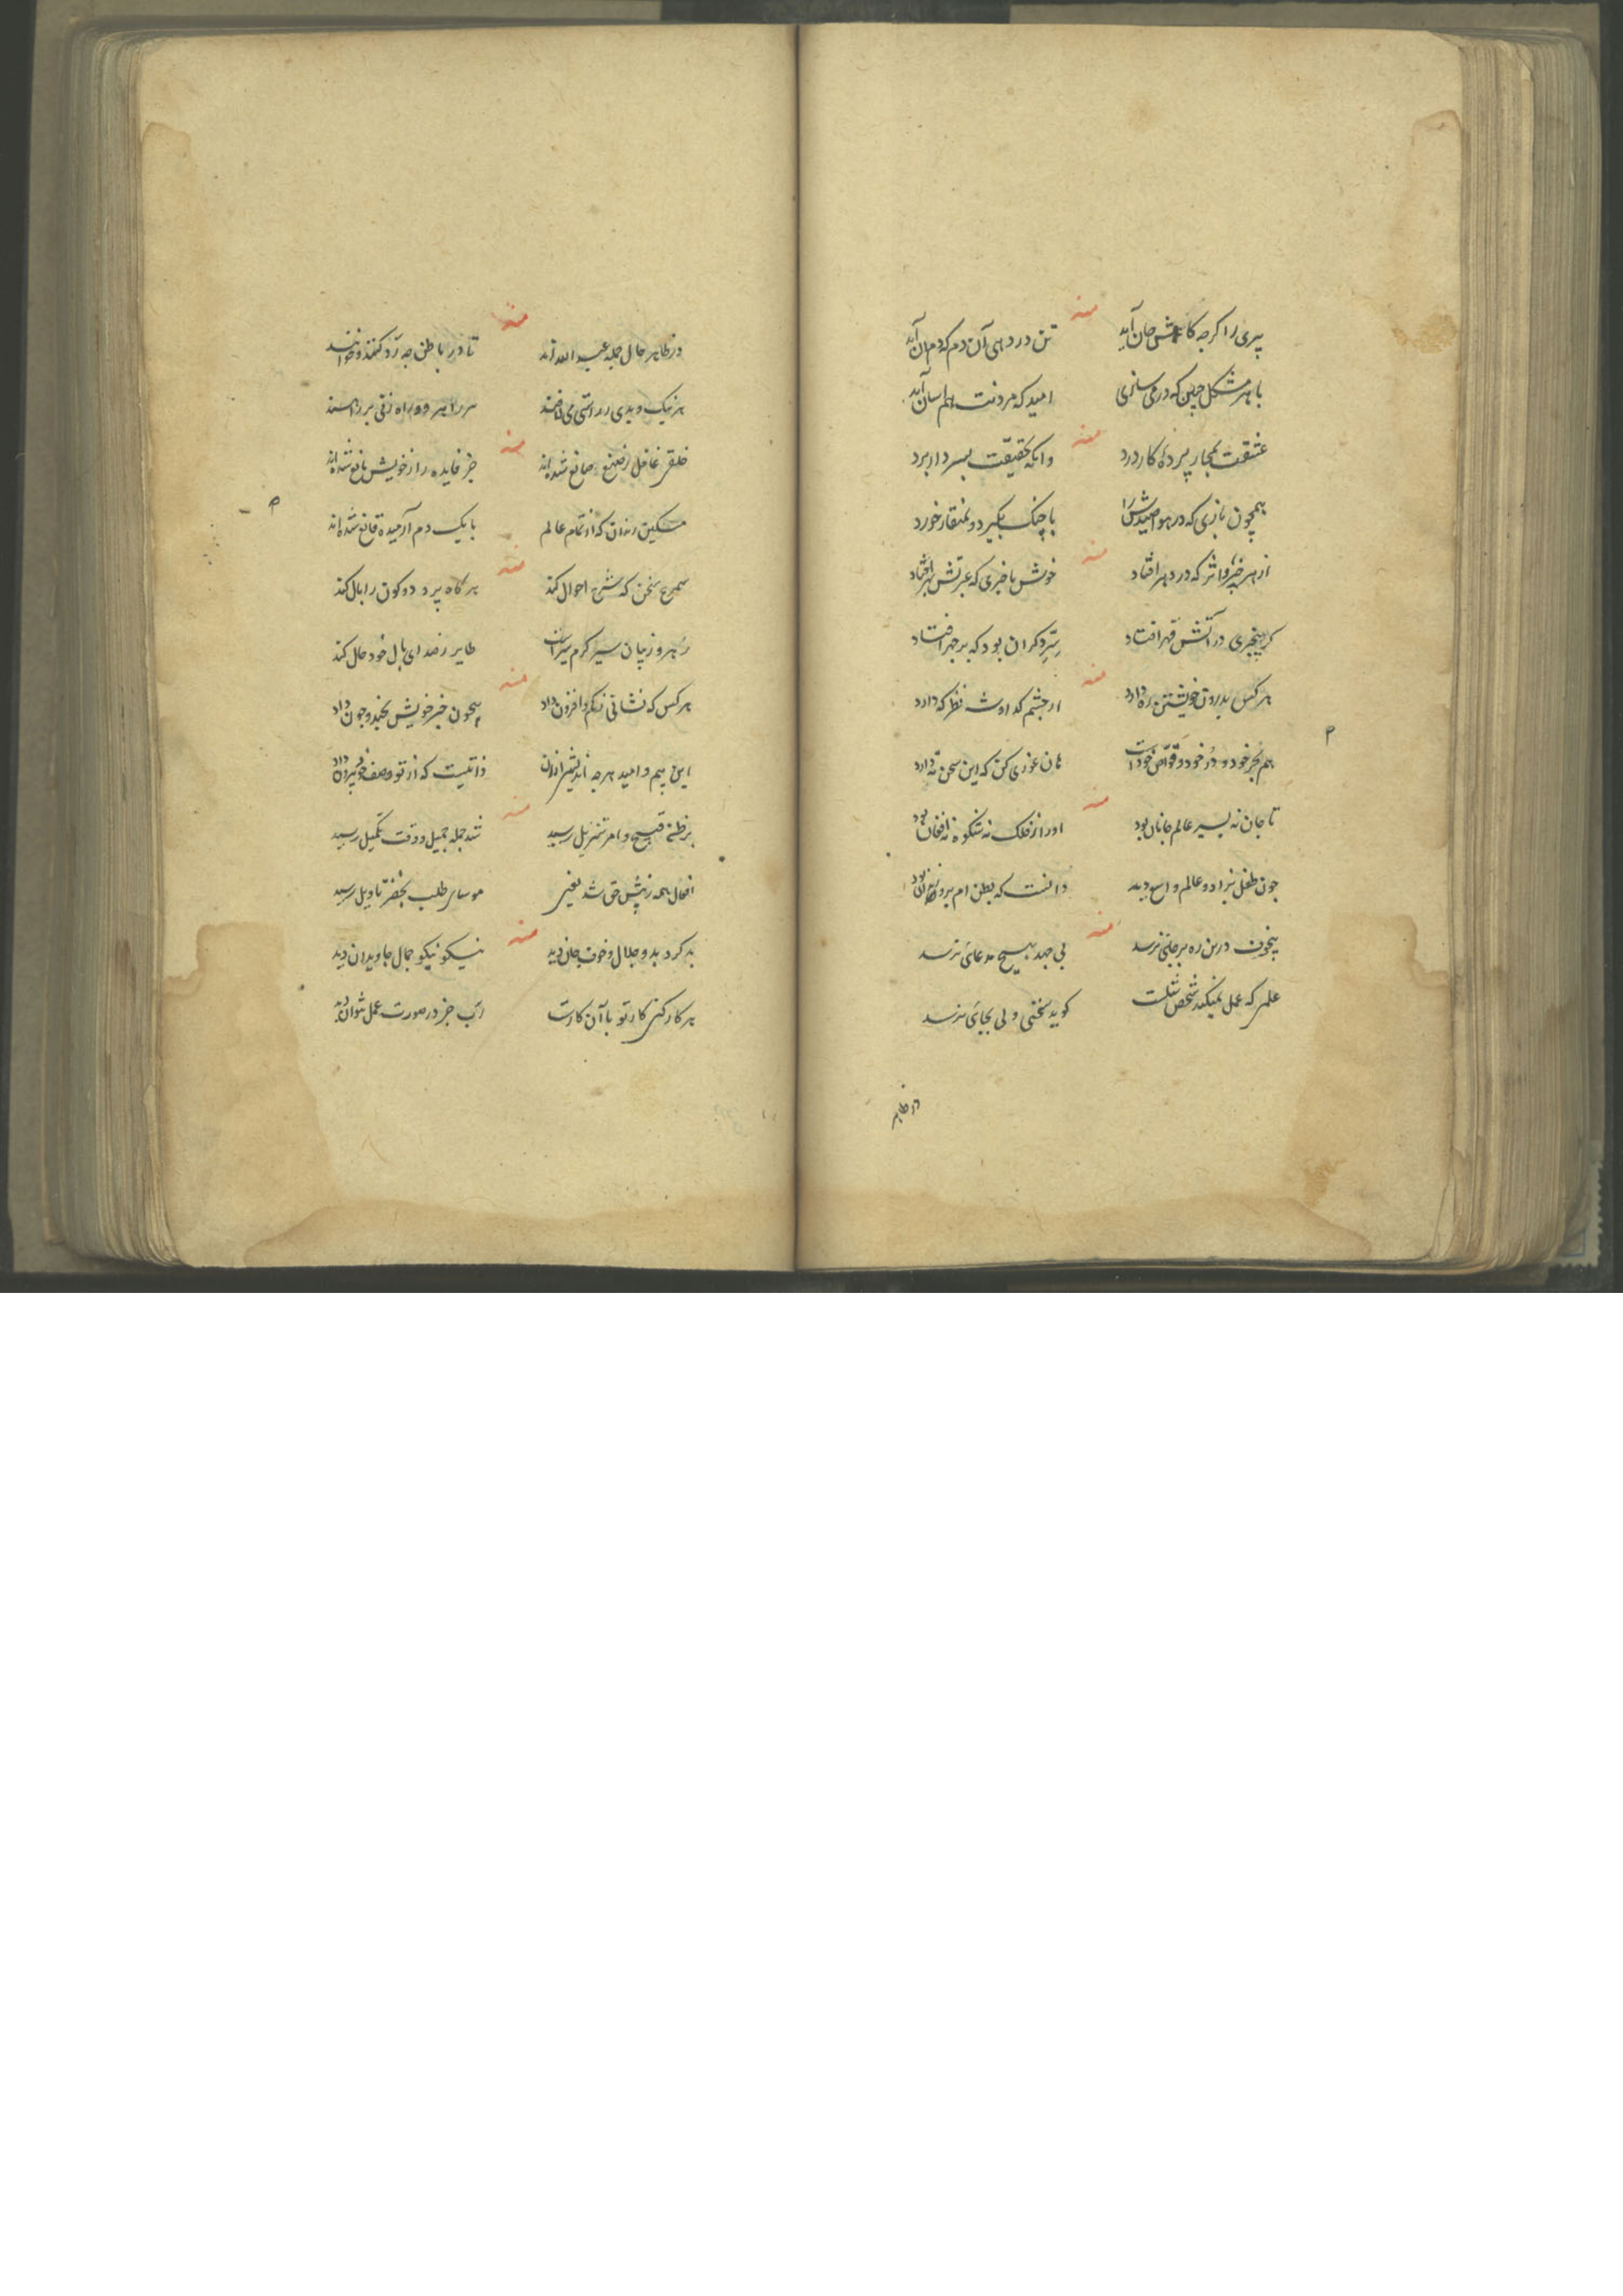 منه
پیری را اکرچه کاهش جان آید تن در دهی آن دم که دم آن آید
با هر مشکل چنین که در می سازی امید که مردنت هم آسان آید
منه
عشقت بمجاز پرده کار درد وانکه بحقیقت بسر دار برد
همچون بازی که در هوا صیدش را با چنک بکیرد و بمنقار خورد
منه
از هر خیر و اثر که در دهر افتاد خوش باخبری که عبرتش بهر افتاد
کر بیخبری در آتش قهر افتاد سر دکران بود که بر جهر افتاد
منه
هر کس بدرون خویشتن ره دارد از چشم که اوشد نظر که دارد
هم بحر خود و در خود و غواص خود است هان غوری کن که این سخن ته دارد
منه
تا جان نه بسیر عالم جانان بود او را از فلک نه شکوه نه افغان بود
چون طفل بزاد و عالم واسع دید دانست که بطن ام برو زندان بود
منه
بیخون درین ره بر جائی نرسد بی جهد بهیچ مدعائی نرسد
علمی که عمل نمیکند شخص شلست کوید سخنی ولی بجائی نرسد
در ظاهر
منه
در ظاهر حال جمله عبد الله اند تا در باطن چه رد کنند و خوانند
هر نیک و بدی راستی می
منه
خلقی غافل ز صنع صانع شده اند جز فایده را از خویش مانع شده اند
مسکین رندان که از تمام عالم با یک دم آرمیده قانع شده اند
منه
سمرغ سخن که شرح احوال کند هر کاه پرد دو کون را بال کند
رهرو ز بیان سیر کرم سیرانست طایر ز صدای بال خود حال کند
منه
هر کس که نشانی ز کم و افزون داد همچون خبر خویش بخود چون داد
این بیم و امید هر چه اندیشی از آن ذاتیست که از تو وصف خود بیرون داد
منه
بر ظن قبیح و امر تنزیل رسید شد جمله جمیل و وقت تکمیل رسید
افعال همه ز پیش حق شد یعنی موسای طلب بخضر تاویل رسید
منه
بد کرد بد و جلال و خوف جان دید نیکو نیکو جمال جاویدان دید
هر کار کنی کار تو با آن کارست رب جز در صورت عمل نتوان دید